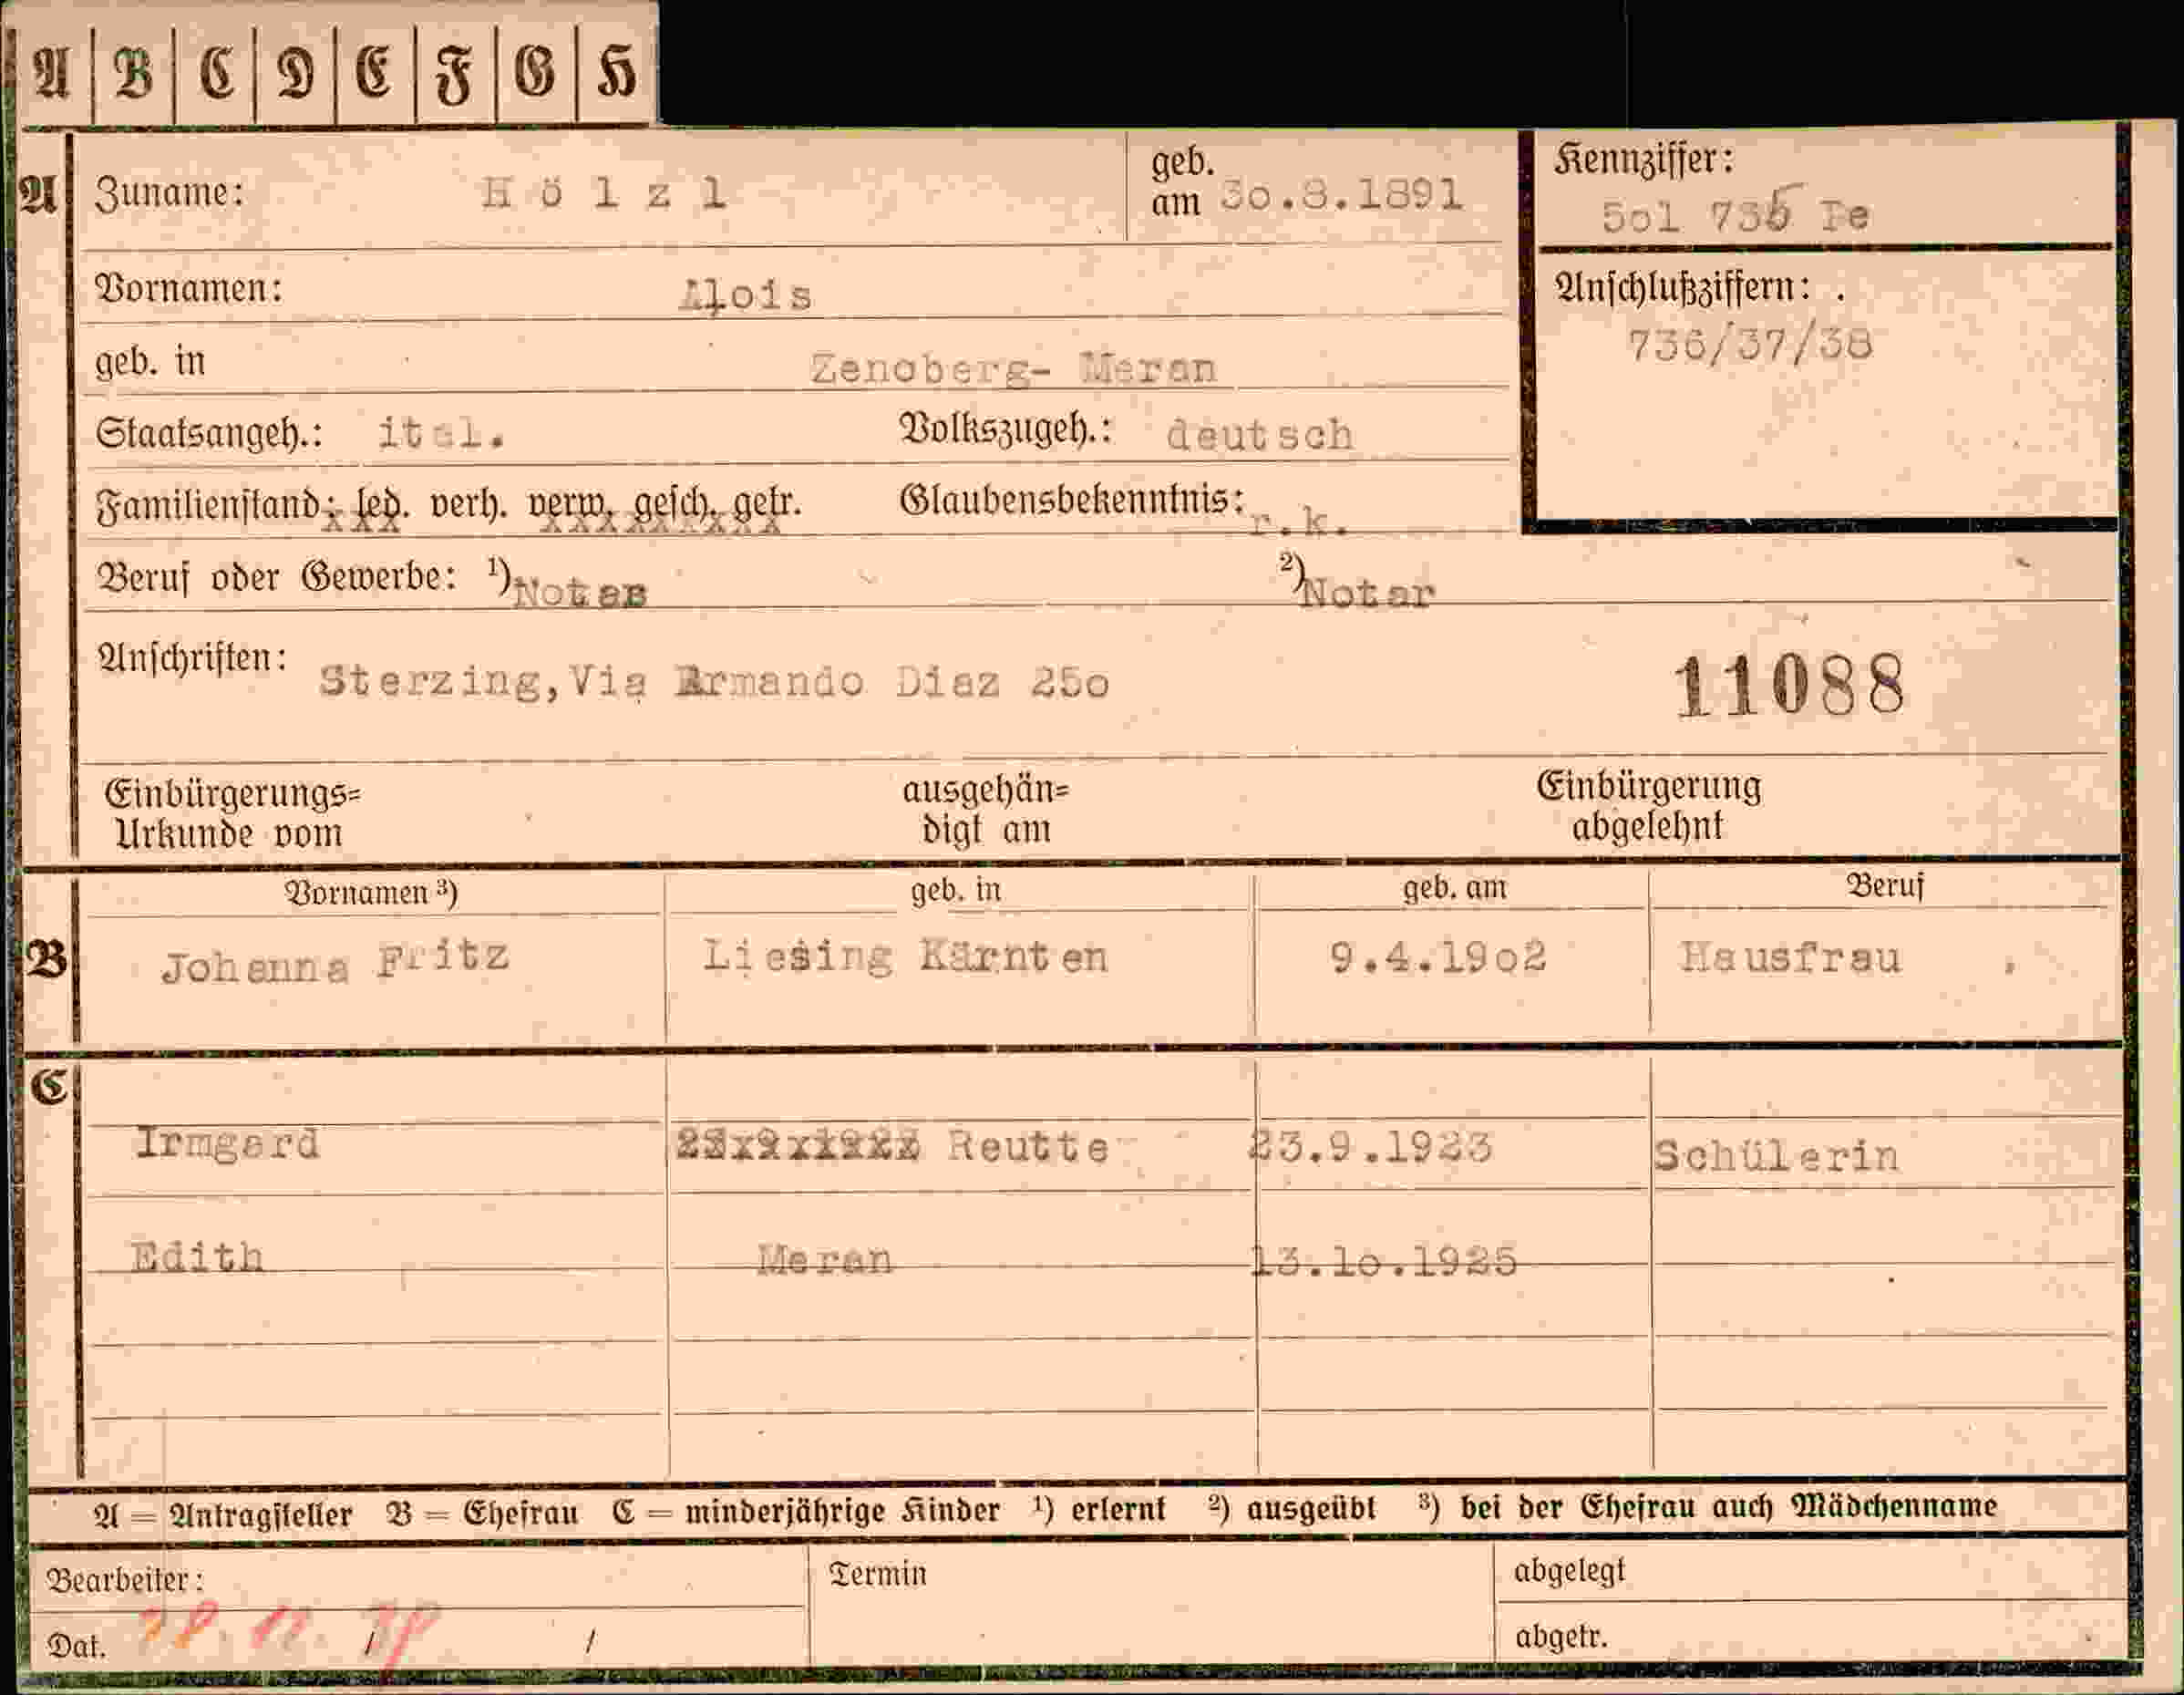 A B C D E F G H
A Zuname: Hölzl geb. am 3o.8.1891 Kennziffer:
5o1 735 Pe
Vornamen: Alois Anschlußziffern:
736/37/38
geb. in Zenoberg- Meran
Staatsangeh.: ital. Volkszugeh.: deutsch
Familienstand: led. verh. verw. gesch. getr. Glaubensbekenntnis: r.k.
Beruf oder Gewerbe: 1) Notar 2) Notar
Anschriften: Sterzing,Via Armando Diaz 25o 11088
Einbürgerungs= ausgehän= Einbürgerung
Urkunde vom digt am abgelehnt
Vornamen 3) geb. in geb. am Beruf
B Johanna Fritz Liesing Kärnten 9.4.19o2 Hausfrau
C
Irmgard Reutte 23.9.1923 Schülerin
Edith Meran 13.1o.1925
A = Antragsteller B = Ehefrau C = minderjährige Kinder 1) erlernt 2) ausgeübt 3) bei der Ehefrau auch Mädchenname
Bearbeiter: Termin abgelegt
Dat. / / abgetr.